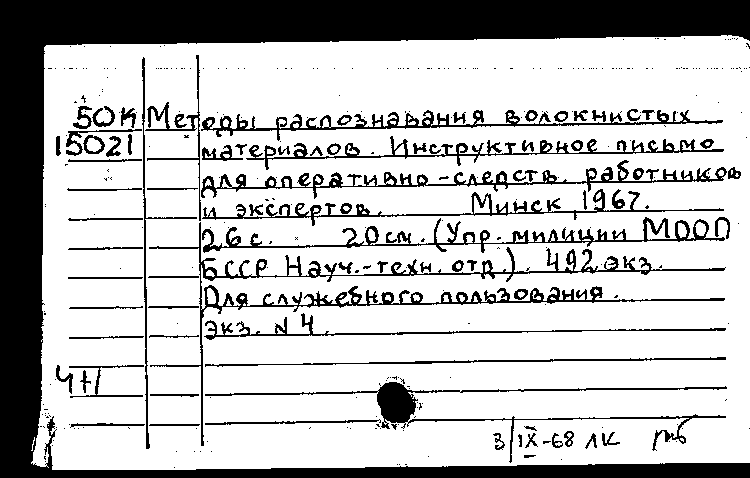 50К Методы распознавания волокнистых
15021 материалов. Инструктивное письмо
для оперативно-следств. работников
и экспертов. Минск, 1967.
26 с. 20 см. (Упр. милиции МООП
БССР. Науч.-техн. отд.). 492 экз.
Для служебного пользования.
экз. N 4.
3/IX-68 ЛК